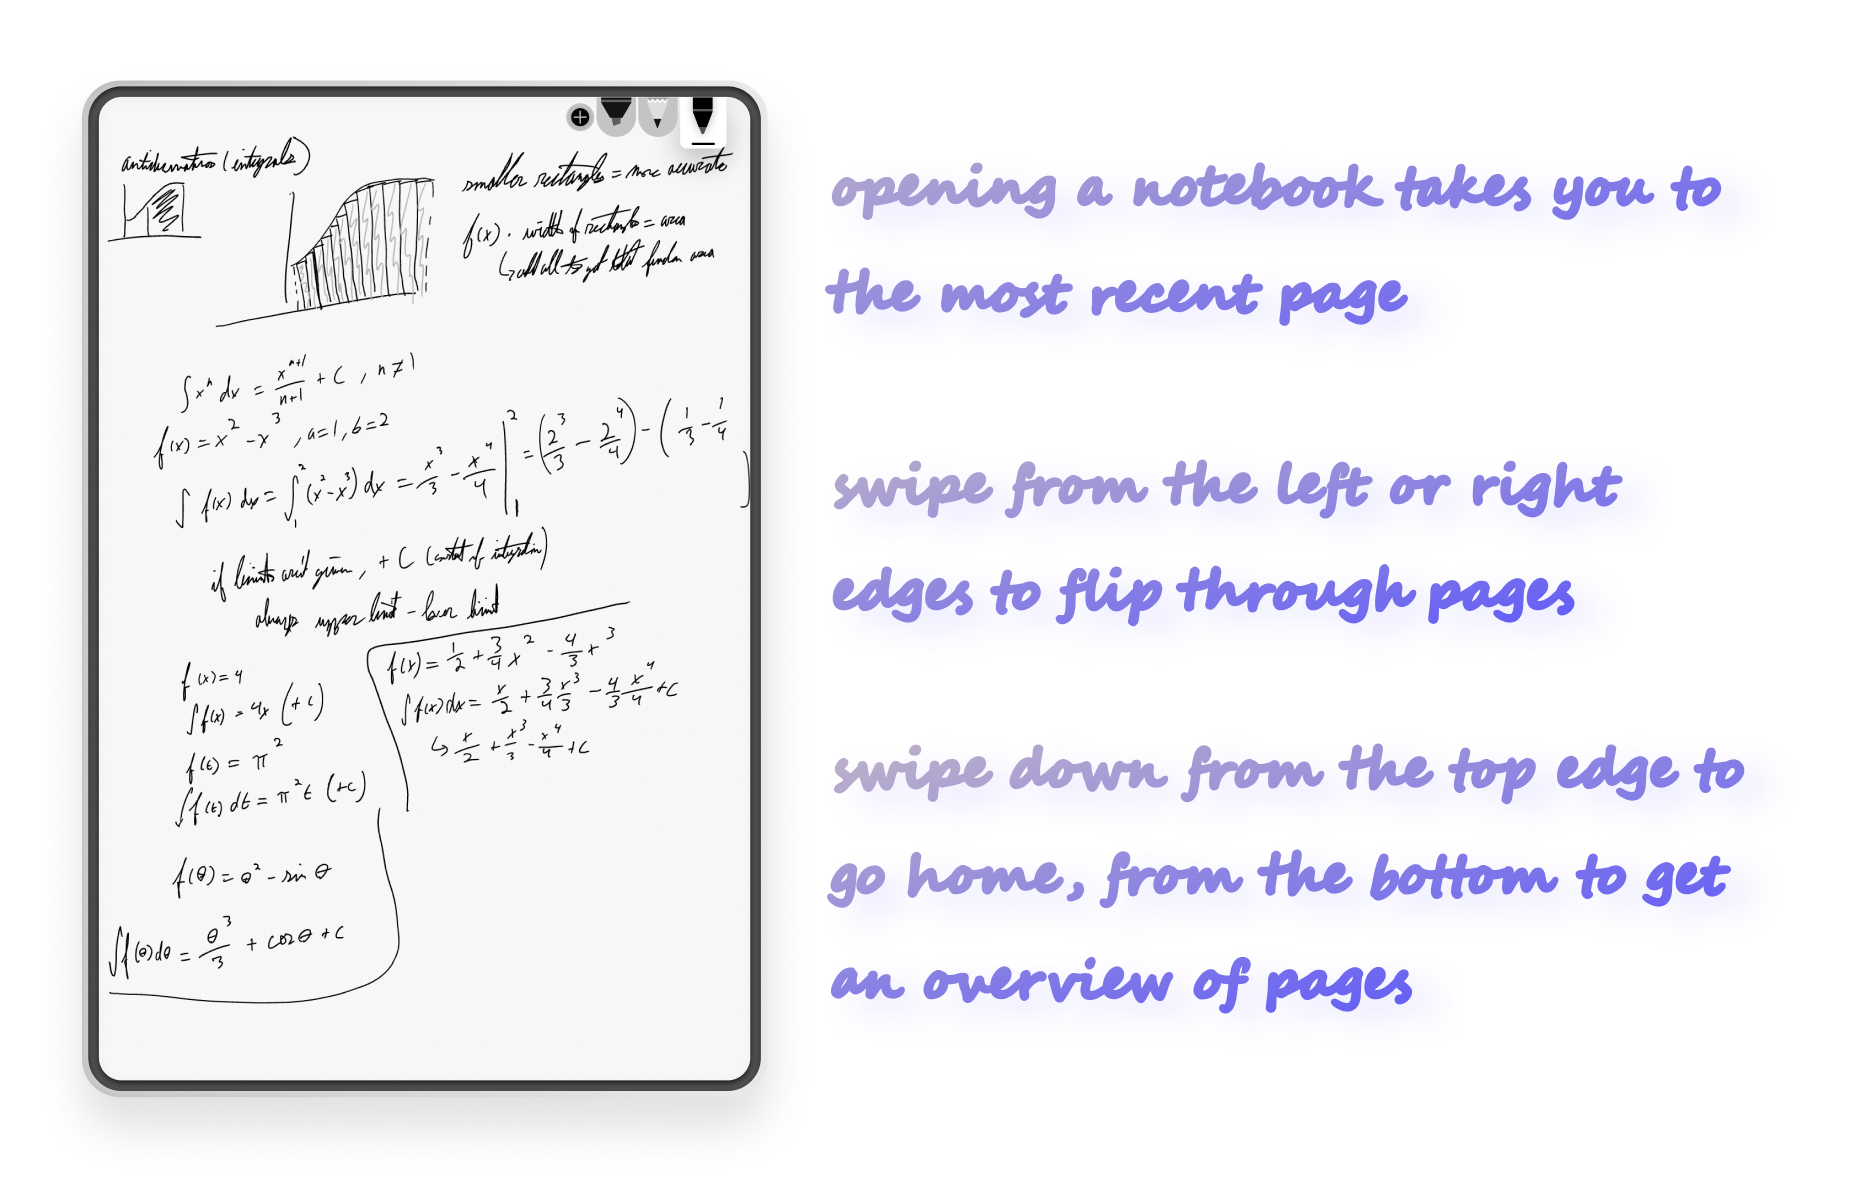 antiderivatives (integrals)
smaller rectangles = more accurate
f(x) · width of rectangle = area
↳ add all to get total area
∫ xⁿ dx = xⁿ⁺¹/n+1 + C , n ≠ 1
f(x) = x² - x³ , a=1, b=2
∫ f(x) dx = ∫₁² (x² - x³) dx = x³/3 - x⁴/4 |₁² = (2³/3 - 2⁴/4) - (1/3 - 1/4
)
if limits aren't given, + C (constant of integration)
always upper limit - lower limit
f(x) = 4
∫ f(x) = 4x (+ C)
f(t) = π²
∫ f(t) dt = π²t (+C)
f(θ) = θ² - sin θ
∫ f(θ) dθ = θ³/3 + cos θ + C
f(x) = 1/2 + 3/4 x² - 4/3 x³
∫ f(x) dx = x/2 + 3/4 x³/3 - 4/3 x⁴/4 + C
↳ x/2 + x³/3 - x⁴/4 + C
opening a notebook takes you to
the most recent page
swipe from the left or right
edges to flip through pages
swipe down from the top edge to
go home, from the bottom to get
an overview of pages